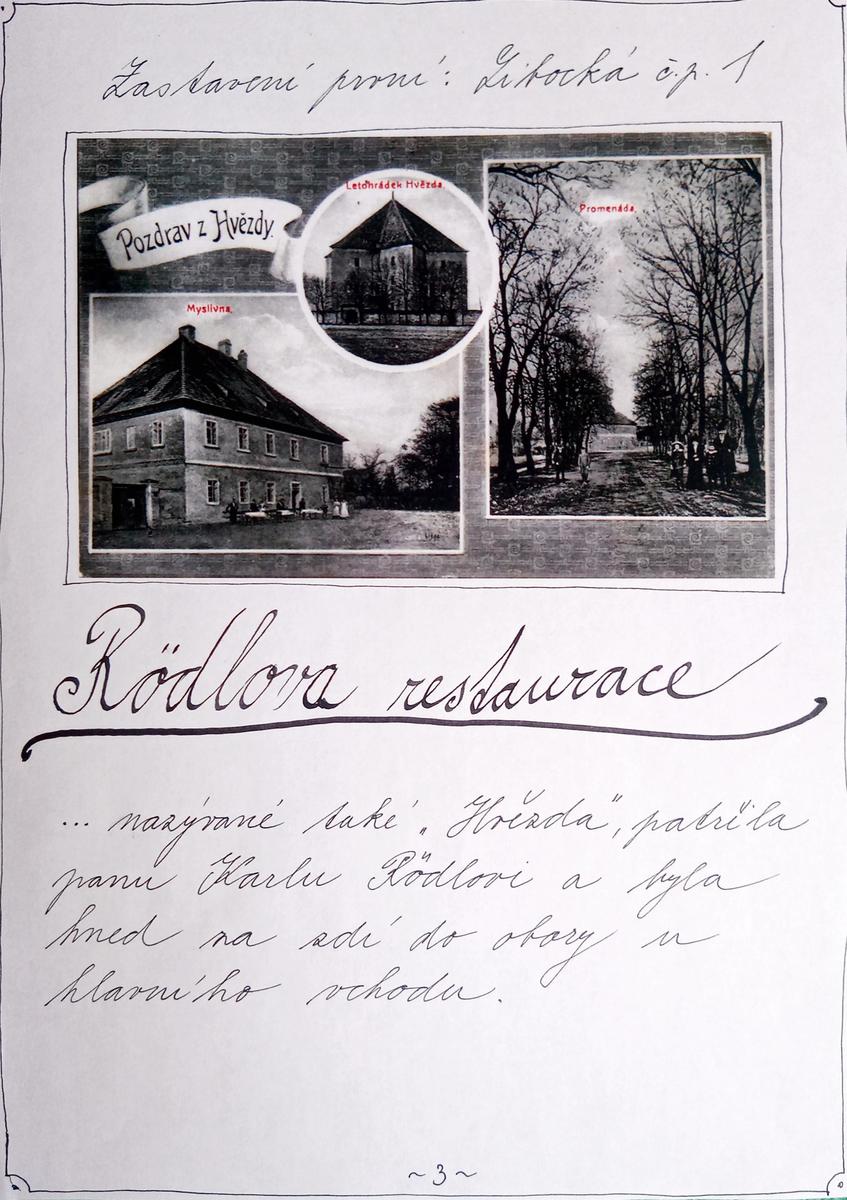 Zastavení první: Libocká č.p. 1
Pozdrav z Hvězdy.
Letohrádek Hvězda.
Promenáda.
Myslivna.
Rödlova restaurace
... nazývané také „Hvězda", patřila
panu Karlu Rödlovi a byla
hned na zdí do obory u
hlavního vchodu.
~3~